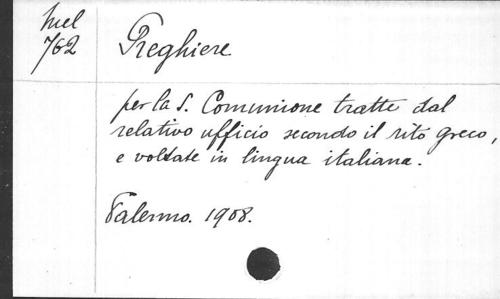 Mel
762
Preghiere
per la S. Comunione tratte dal
relativo ufficio secondo il rito greco,
e voltate in lingua italiana.
Palermo. 1908.